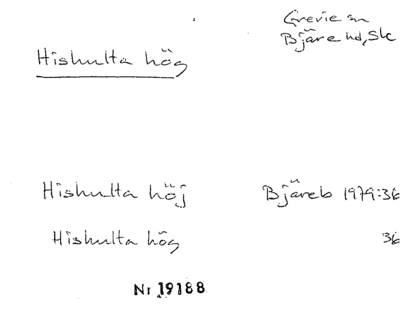 Grevie sn
Bjäre hd, Sk
Hishulta hög
Hishulta höj Bjäreb 1979:36
Hishulta hög 36
Nr 19188